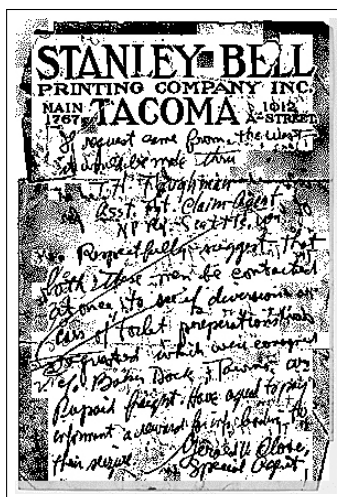 STANLEY BELL
PRINTING COMPANY INC.
MAIN 1767 TACOMA 1012 A-STREET
If request came from the West
it would be made thru
T. H. Maughman
Asst. Claim Agent
N P Ry. Seattle,
Respectfully suggest that
both these men be contacted
at once, to see if diversion on
Cars of toilet preparations was
requested which were consigned
Baker Dock, Tacoma, as
Prepaid freight. Have agreed to pay
informant a reward for info leading to
their seizure
Special Agent